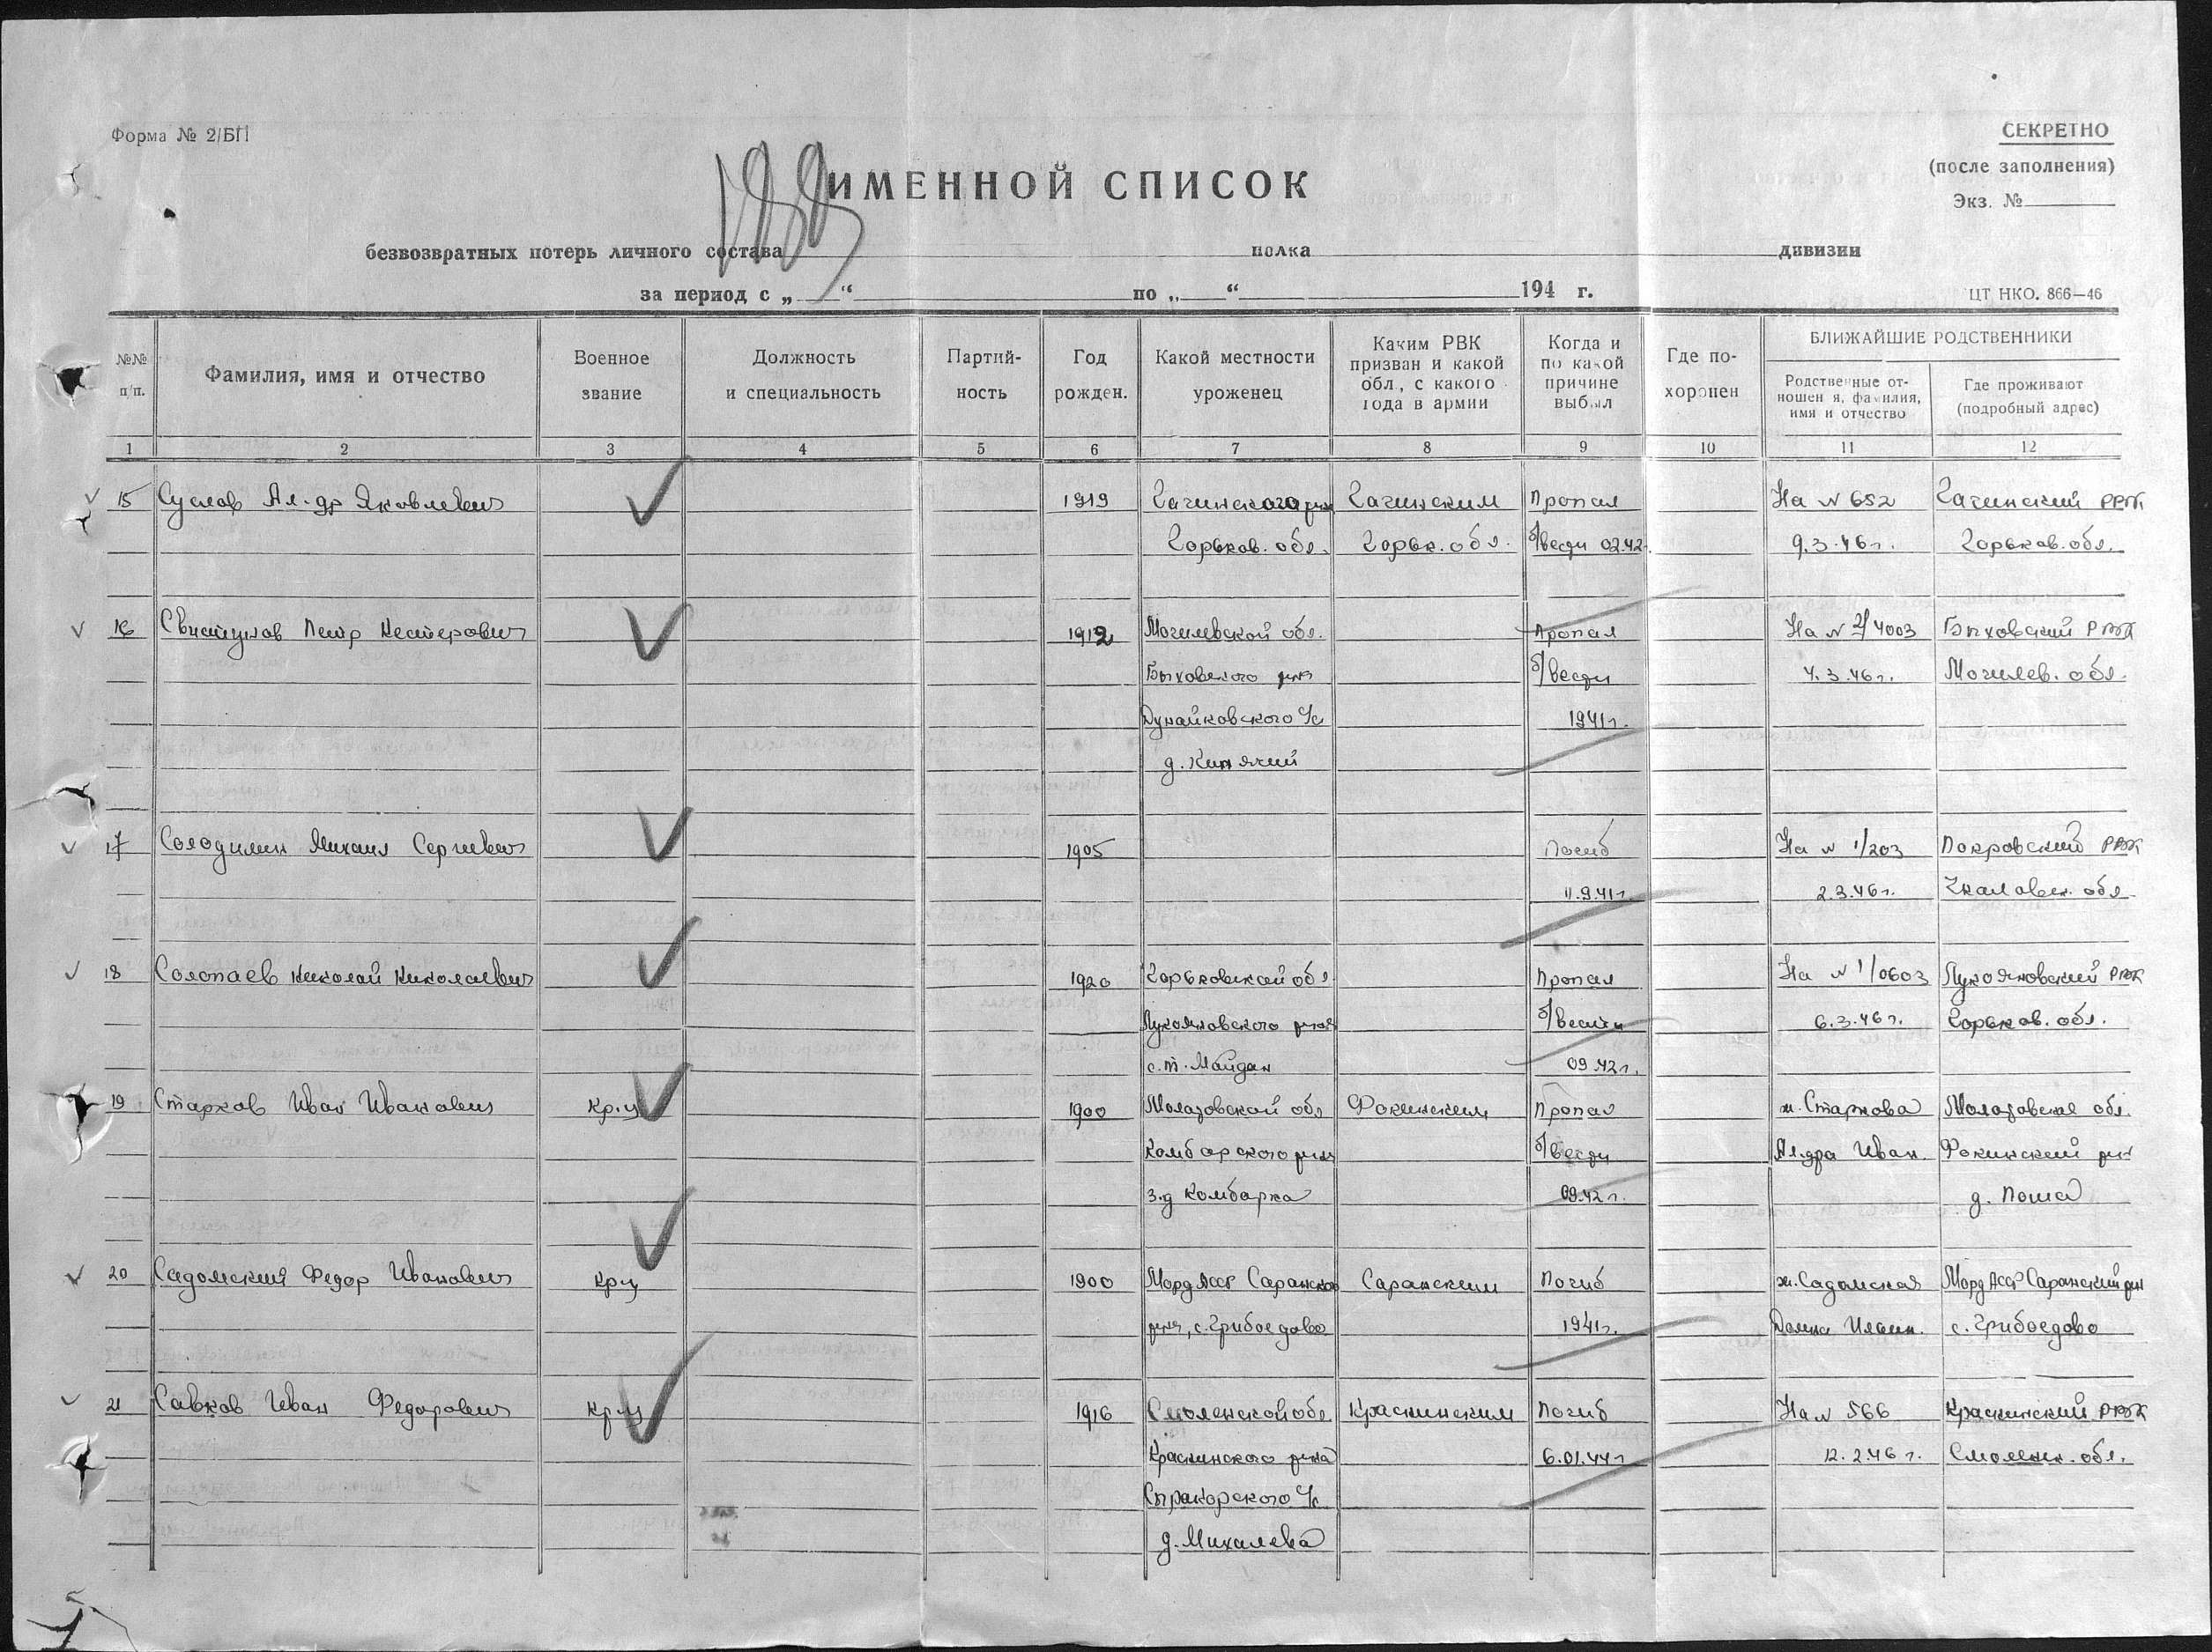 Форма № 2/БП
СЕКРЕТНО
(после заполнения)
Экз. №
ИМЕННОЙ СПИСОК
безвозвратных потерь личного состава полка дивизии
за период с „ “ по „ “ 194 г.
ЦТ НКО. 866—46
№№ п/п.
Фамилия, имя и отчество
Военное звание
Должность и специальность
Партийность
Год рожден.
Какой местности уроженец
Каким РВК призван и какой обл., с какого года в армии
Когда и по какой причине выбыл
Где похоронен
БЛИЖАЙШИЕ РОДСТВЕННИКИ
Родственные отношен я, фамилия, имя и отчество
Где проживают (подробный адрес)
1 2 3 4 5 6 7 8 9 10 11 12
15 Суслов Ал-др Яковлевич 1919 Гагинского р-на Гагинским Пропал На № 652 Гагинский РВК
Горьков. обл. Горьк. обл. б/вести 02.42 9.3.46 г. Горьков. обл.
16 Свистунов Петр Нестерович 1912 Могилевской обл. Пропал На № 2/4003 Быховский РВК
Быховского р-на б/вести 4.3.46 г. Могилев. обл.
Дунайковского с/с 1941 г.
д.
17 Солодилин Михаил Сергеевич 1905 Погиб На № 1/203 Покровский РВК
11.9.41 г. 2.3.46 г. Чкаловск. обл.
18 Солопаев Николай Николаевич 1920 Горьковской обл Пропал На № 1/0603 Лукояновский РВК
Лукояновского р-на б/вести 6.3.46 г. Горьков. обл.
с. т. Майдан 09.42 г.
19 Старков Иван Иванович кр-ц 1900 Молотовской обл Фокинским Пропал ж. Старкова Молотовская обл.
Камбарского р-на б/вести Ал-дра Иван. Фокинский р-н
з-д Камбарка 09.42 г. д. Поша
20 Садомский Федор Иванович кр-ц 1900 Морд АССР Саранского Саранским Погиб ж. Садомская Морд АССР Саранский р-н
р-на, с. Грибоедово 1941 г. Домна Ильин. с. Грибоедово
21 Савков Иван Федорович кр-ц 1916 Смоленской обл. Краснинским Погиб На № 566 Краснинский РВК
Краснинского р-на 6.01.44 г 12.2.46 г. Смоленск. обл.
Сырокорского с/с
д. Михалева